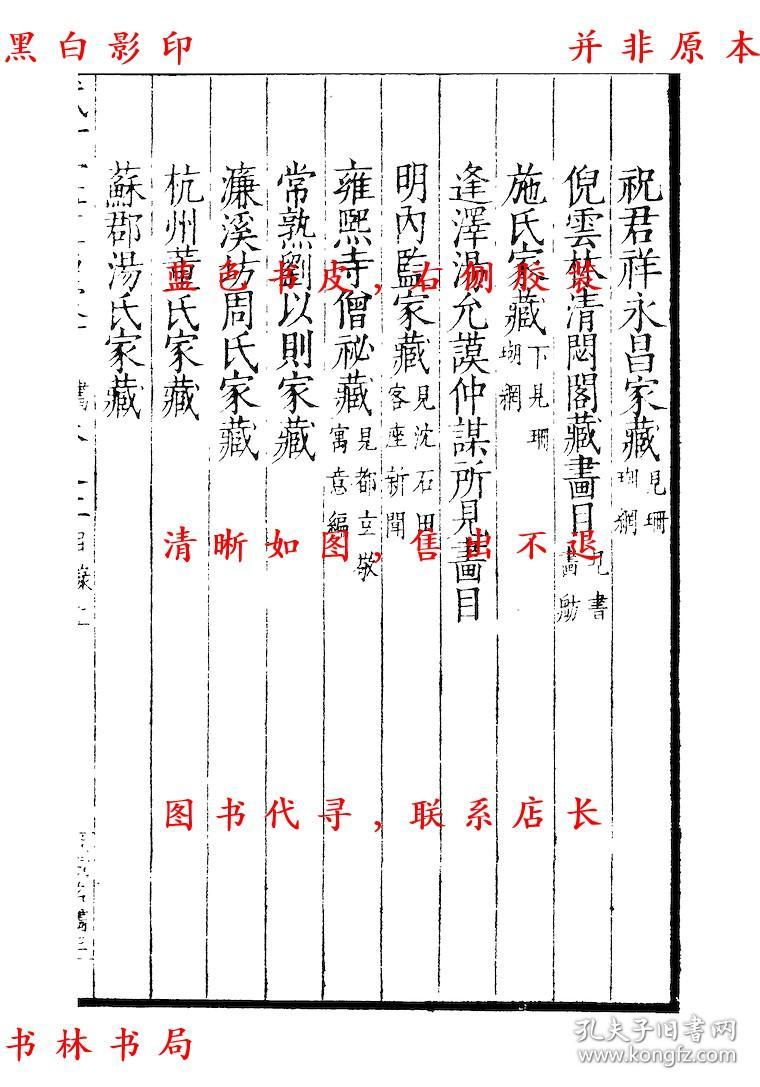 黑白影印
并非原本
祝君祥永昌家藏見珊瑚網
倪雲林清閟閣藏畫目見書畫舫
施氏家藏下見珊瑚網
逢澤湯允謨仲謀所見畫目
明內監家藏見沈石田客座新聞
雍熙寺僧祕藏見都玄敬寓意編
常熟劉以則家藏
濂溪坊周氏家藏
杭州董氏家藏
蘇郡湯氏家藏
蓝色书皮,右侧胶装
清晰如图,售出不退
图书代寻,联系店长
书林书局
孔夫子旧书网
www.kongfz.com